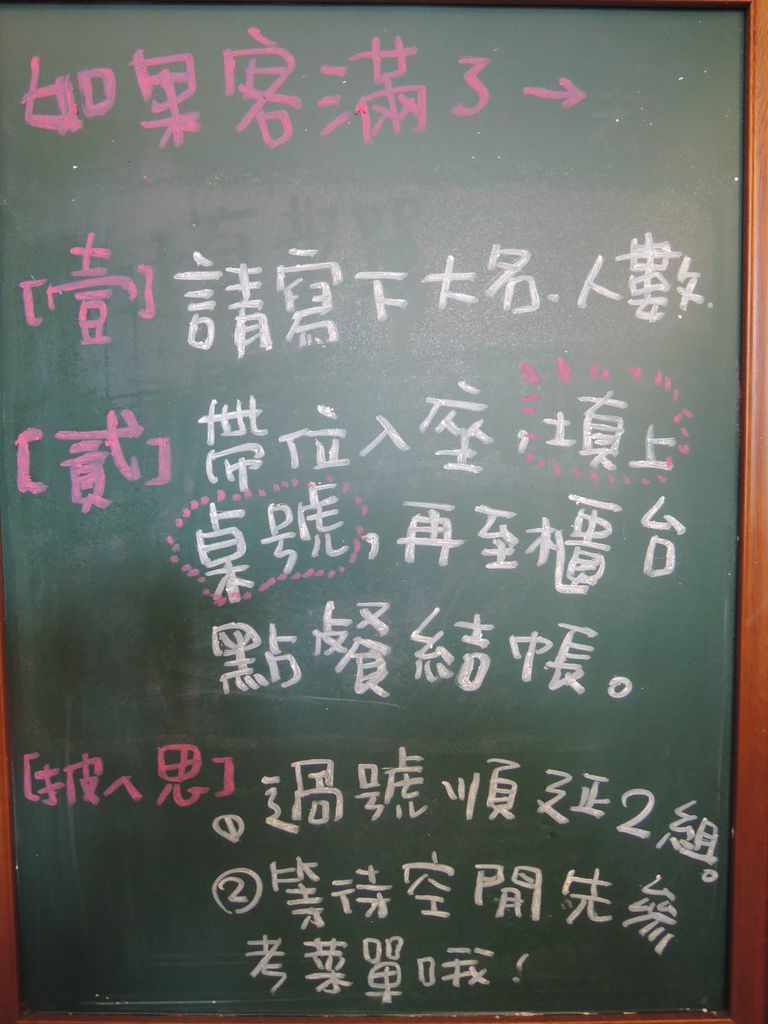 如果客滿了→
[壹] 請寫下大名.人數.
[貳] 帶位入座,填上
桌號,再至櫃台
點餐結帳。
[披ㄟ思] ①過號順延2組。
②等待空閒先參
考菜單哦!